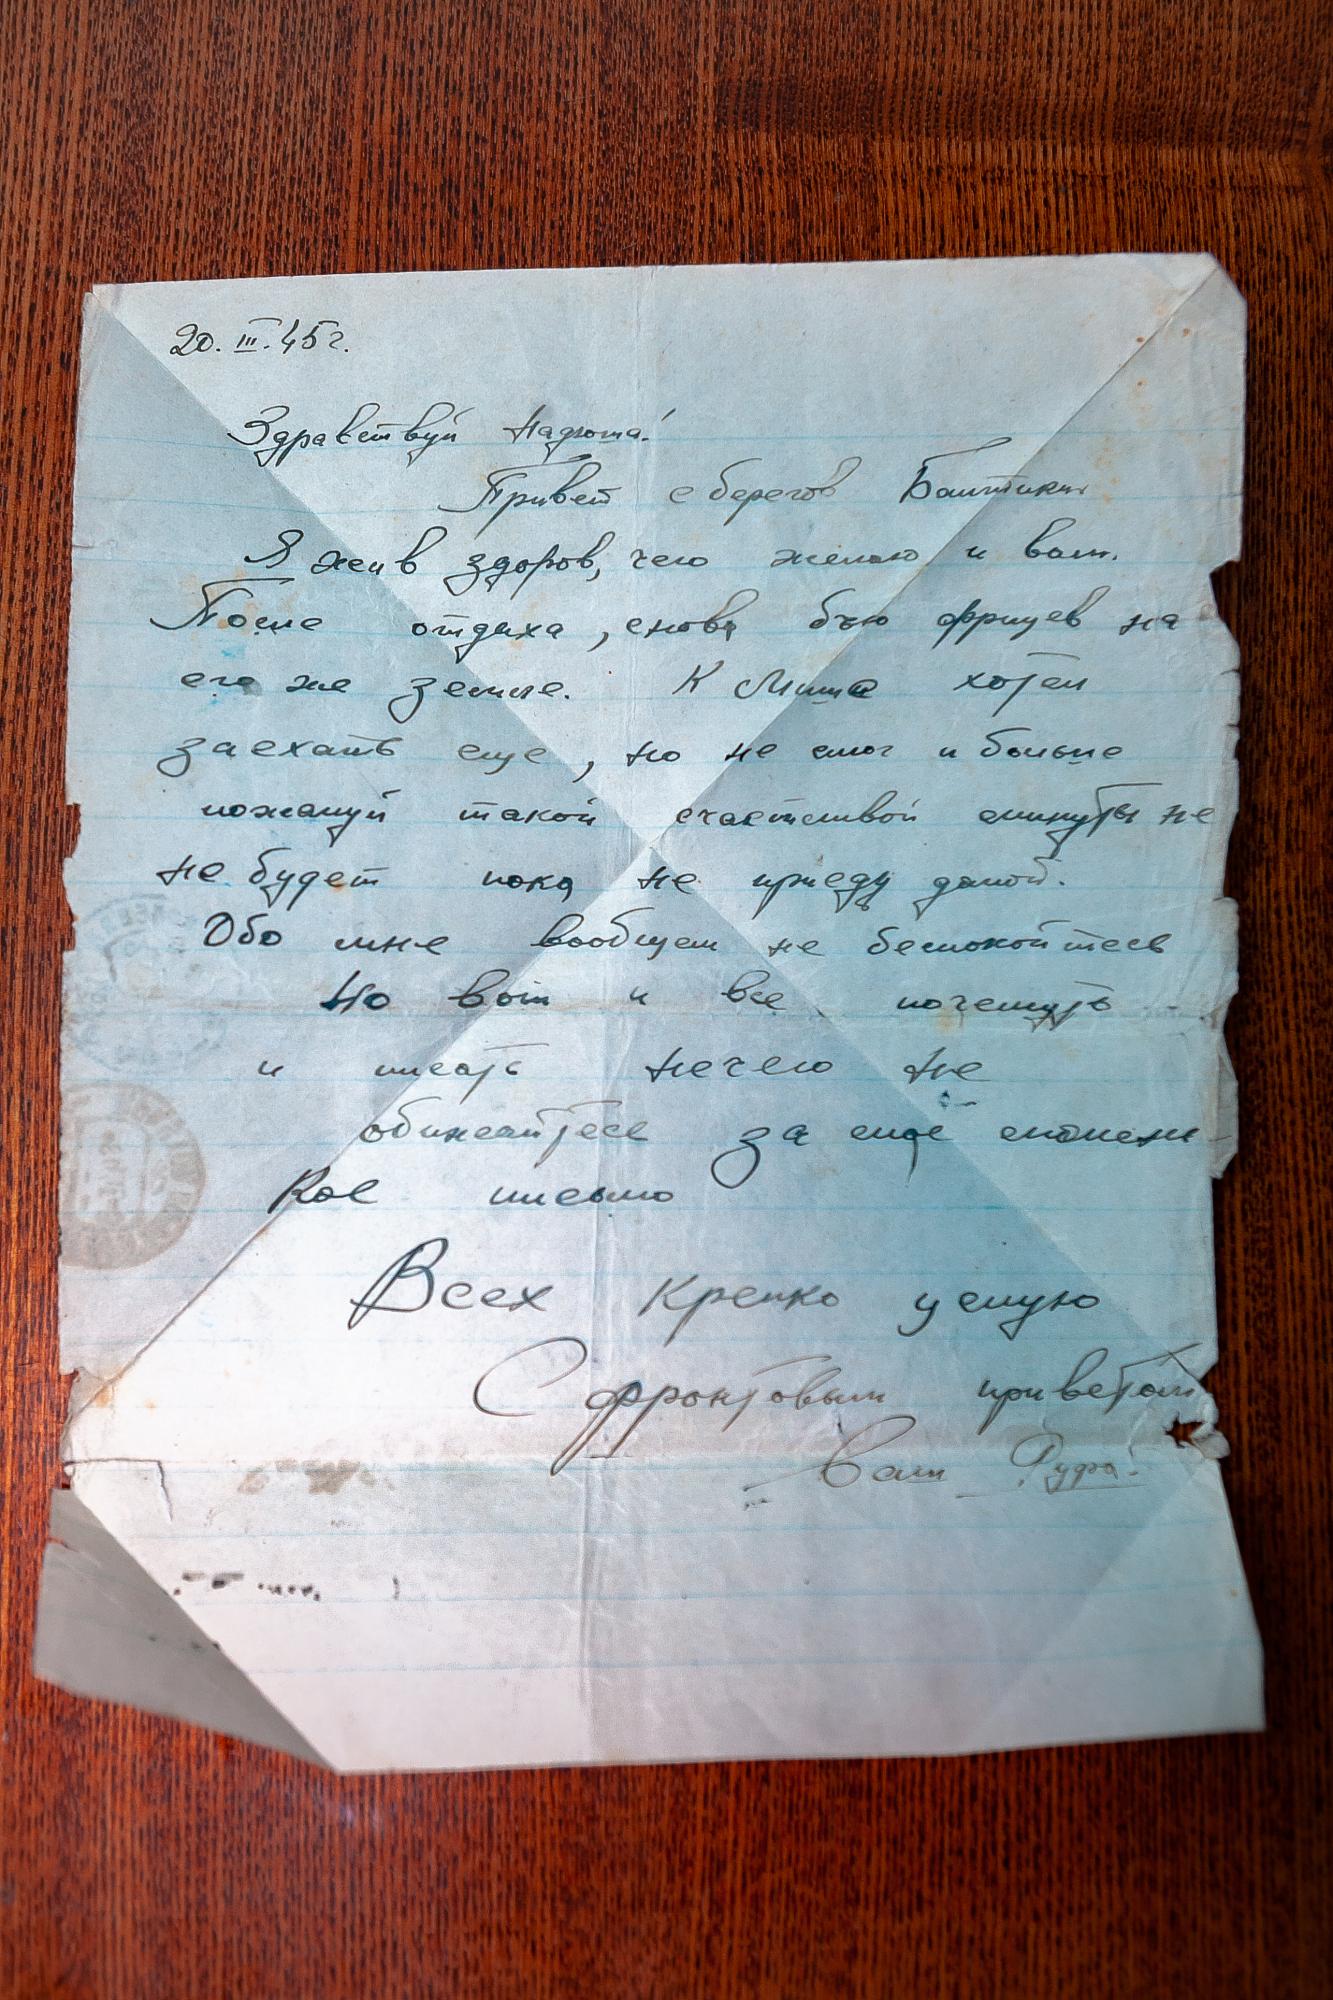 20.III.45г.
Здравствуй Надюша!
Привет с берегов Балтики
Я жив здоров, чего желаю и вам.
После отдыха, снова бью фрицев на
его же земле. К Мише хотел
заехать еще, но не смог и больше
пожалуй такой счастливой минуты не
не будет пока не приеду домой.
Обо мне вообщем не беспокойтесь
Но вот и все
и писать нечего не
обижайтесь за
кое письмо
Всех крепко целую
С фронтовым приветом
Ваш